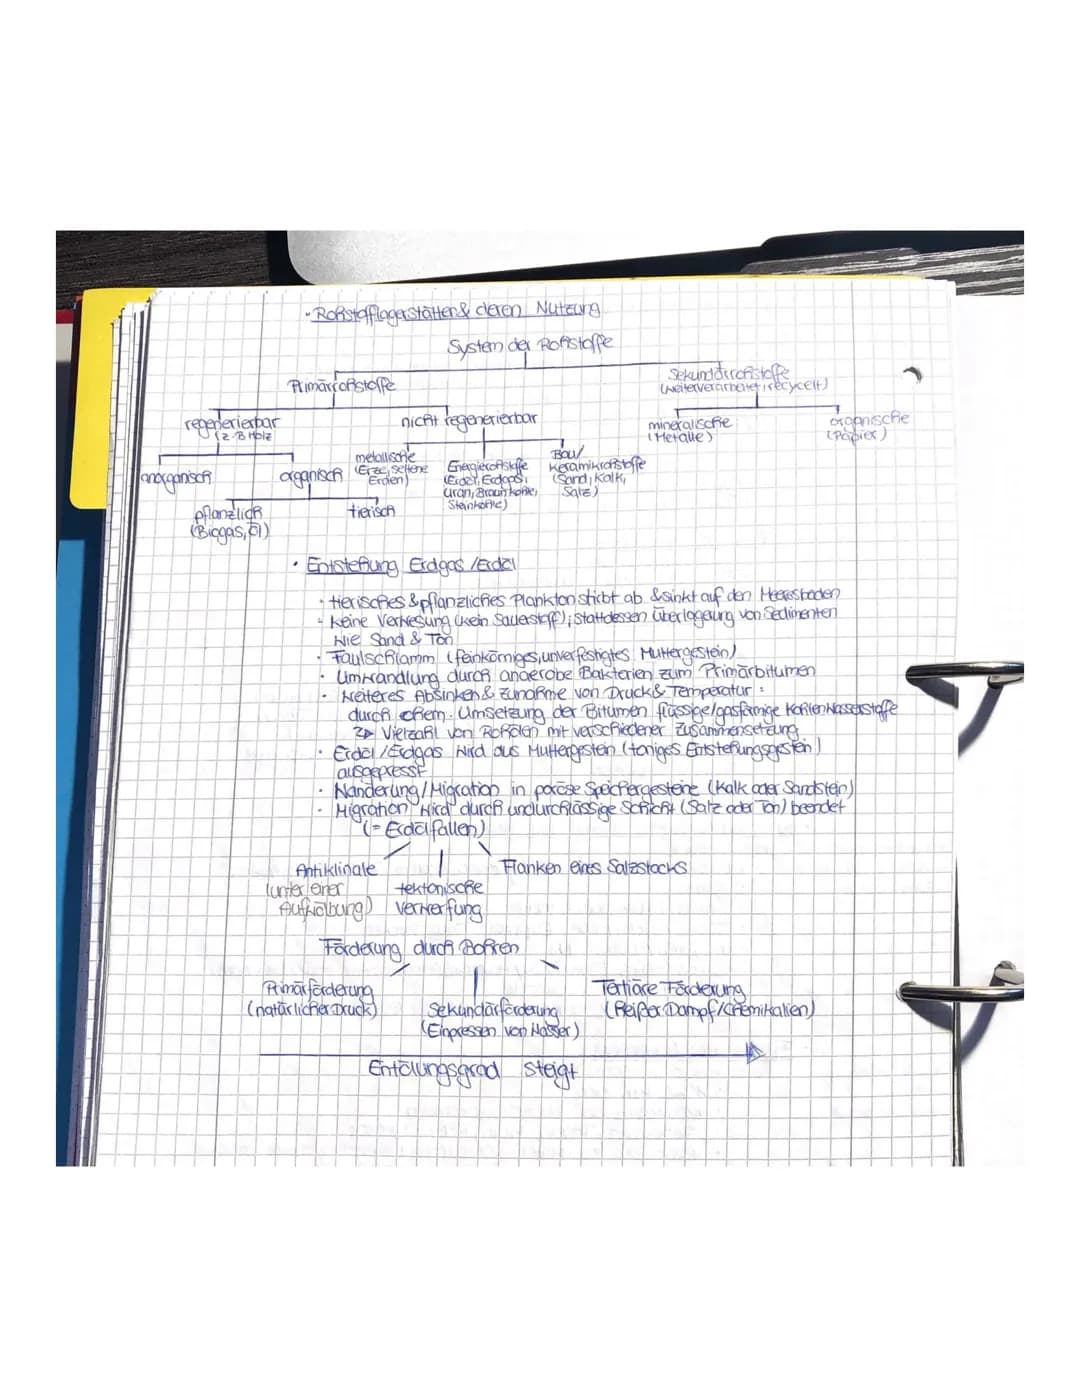 - Rohstofflagerstätten & deren Nutzung
System der Rohstoffe
Primärrohstoffe
Sekundärrohstoffe
(weiterverarbeitet, recycelt)
regenerierbar
(z.B Holz
nicht regenerierbar
mineralische
(Metalle)
organische
(Papier)
anorganisch
organisch
metallische
(Erze, seltene
Erden)
Energierohstoffe
(Erdöl, Erdgas,
Uran, Braunkohle,
Steinkohle)
Bau/
Keramikrohstoffe
(Sand, Kalk,
Salz)
pflanzlich
(Biogas, Öl)
tierisch
• Entstehung Erdgas/Erdöl
• tierisches & pflanzliches Plankton stirbt ab & sinkt auf den Meeresboden
- keine Verwesung (kein Sauerstoff); stattdessen Überlagerung von Sedimenten
wie Sand & Ton
• Faulschlamm (feinkörniges, unverfestigtes Muttergestein)
• Umwandlung durch anaerobe Bakterien zum Primärbitumen
• weiteres Absinken & Zunahme von Druck & Temperatur:
durch chem. Umsetzung der Bitumen flüssige/gasförmige Kohlenwasserstoffe
Vielzahl von Rohölen mit verschiedener Zusammensetzung
• Erdöl/Erdgas wird aus Muttergestein (toniges Entstehungsgestein)
ausgepresst
• Wanderung/Migration in poröse Speichergesteine (Kalk oder Sandstein)
• Migration wird durch undurchlässige Schicht (Salz oder Ton) beendet
(= Erdölfallen)
Antiklinale
(unter einer
Aufwölbung)
tektonische
Verwerfung
Flanken eines Salzstocks
Förderung durch Bohren
Primärförderung
(natürlicher Druck)
Sekundärförderung
(Einpressen von Wasser)
Tertiäre Förderung
(heißer Dampf/Chemikalien)
Entölungsgrad steigt